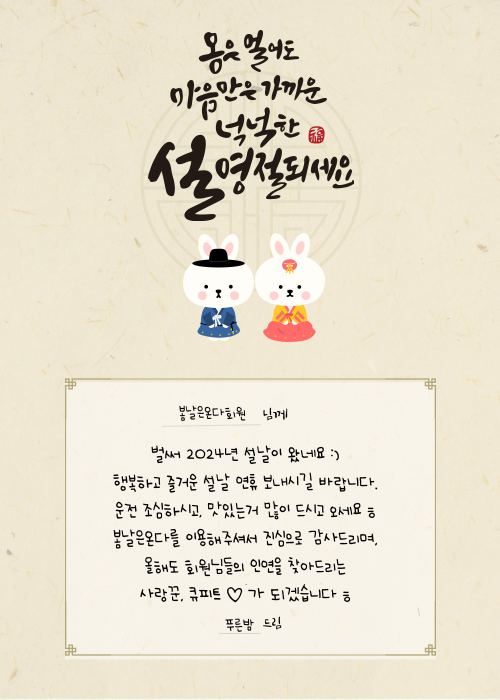 몸은 멀어도
마음만은 가까운
넉넉한
福
설명절되세요
봄날은온다회원 님께
벌써 2024년 설날이 왔네요 :)
행복하고 즐거운 설날 연휴 보내시길 바랍니다.
운전 조심하시고, 맛있는거 많이 드시고 오세요 ㅎ
봄날은온다를 이용해주셔서 진심으로 감사드리며,
올해도 회원님들의 인연을 찾아드리는
사랑꾼, 큐피트 ♡ 가 되겠습니다 ㅎ
푸른밤 드림